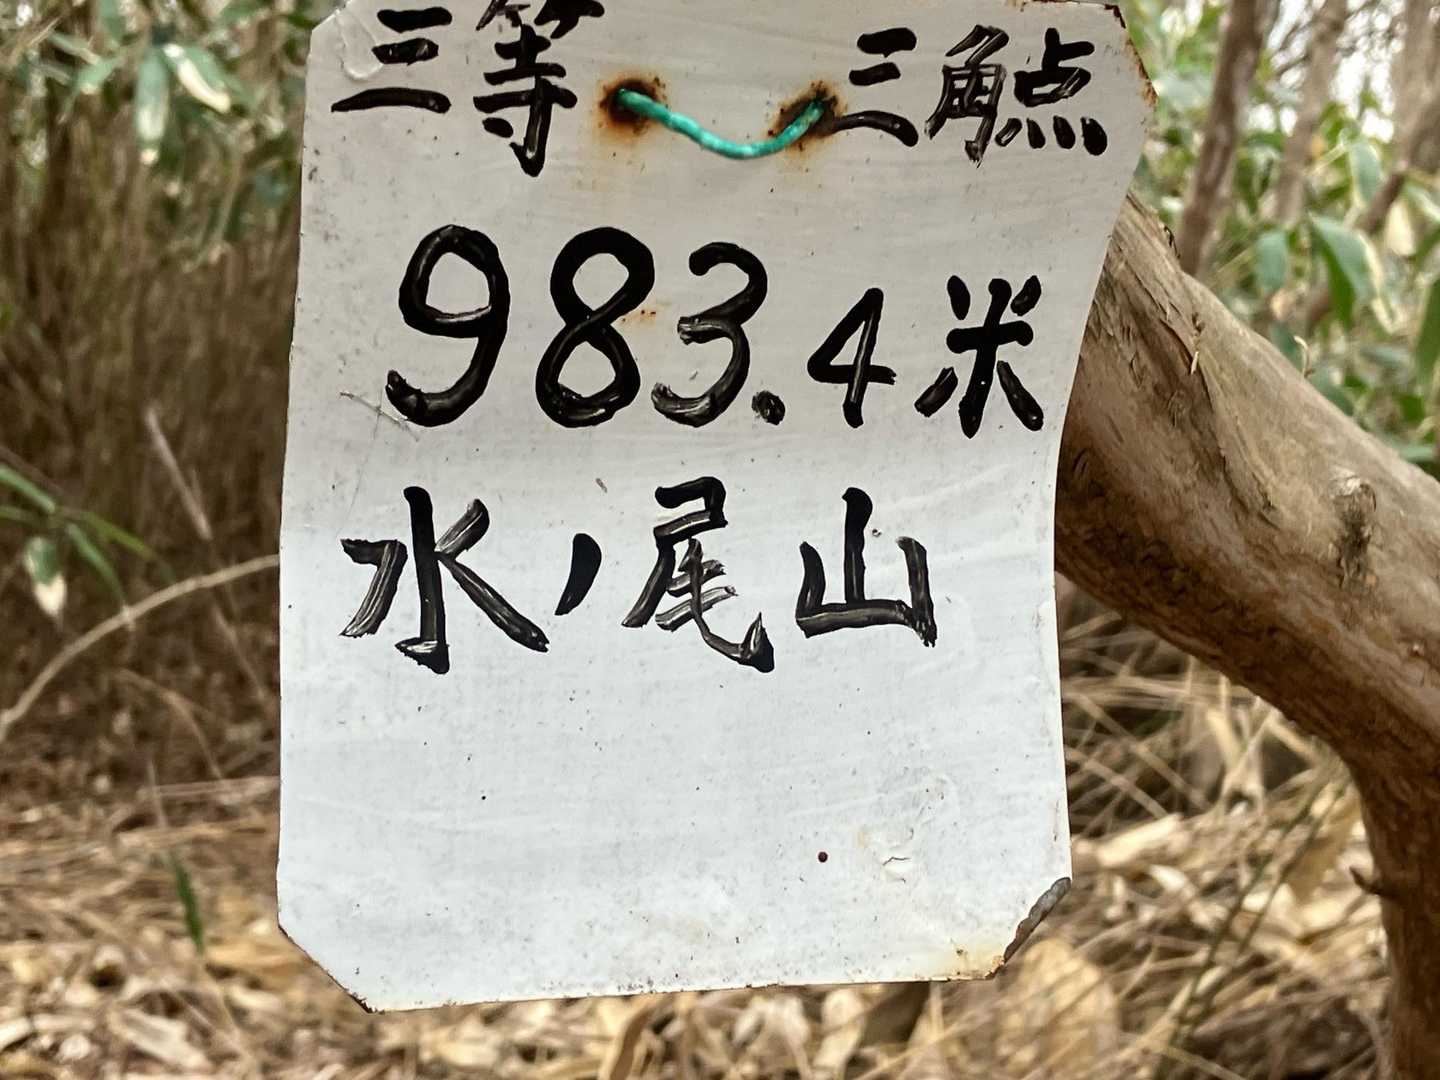 三等 三角点
983.4米
水ノ尾山